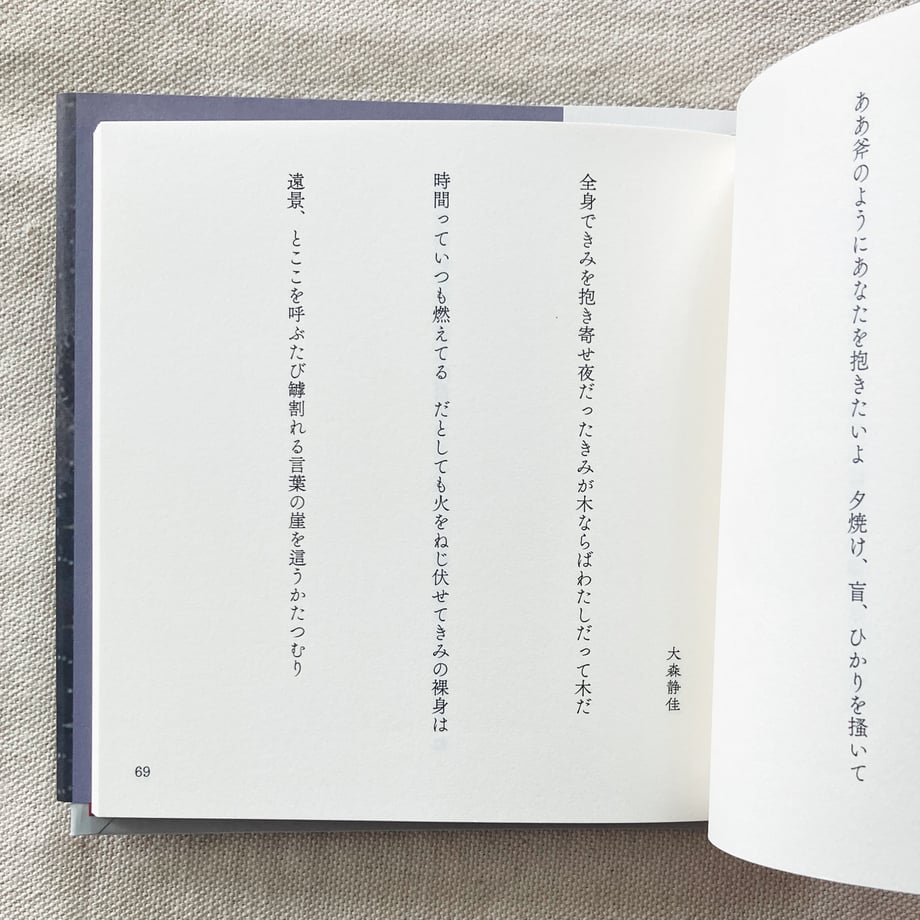 ああ斧のようにあなたを抱きたいよ　夕焼け、盲、ひかりを掻いて
大森静佳
全身できみを抱き寄せ夜だったきみが木ならばわたしだって木だ
時間っていつも燃えてる　だとしても火をねじ伏せてきみの裸身は
遠景、とここを呼ぶたび罅割れる言葉の崖を這うかたつむり
69